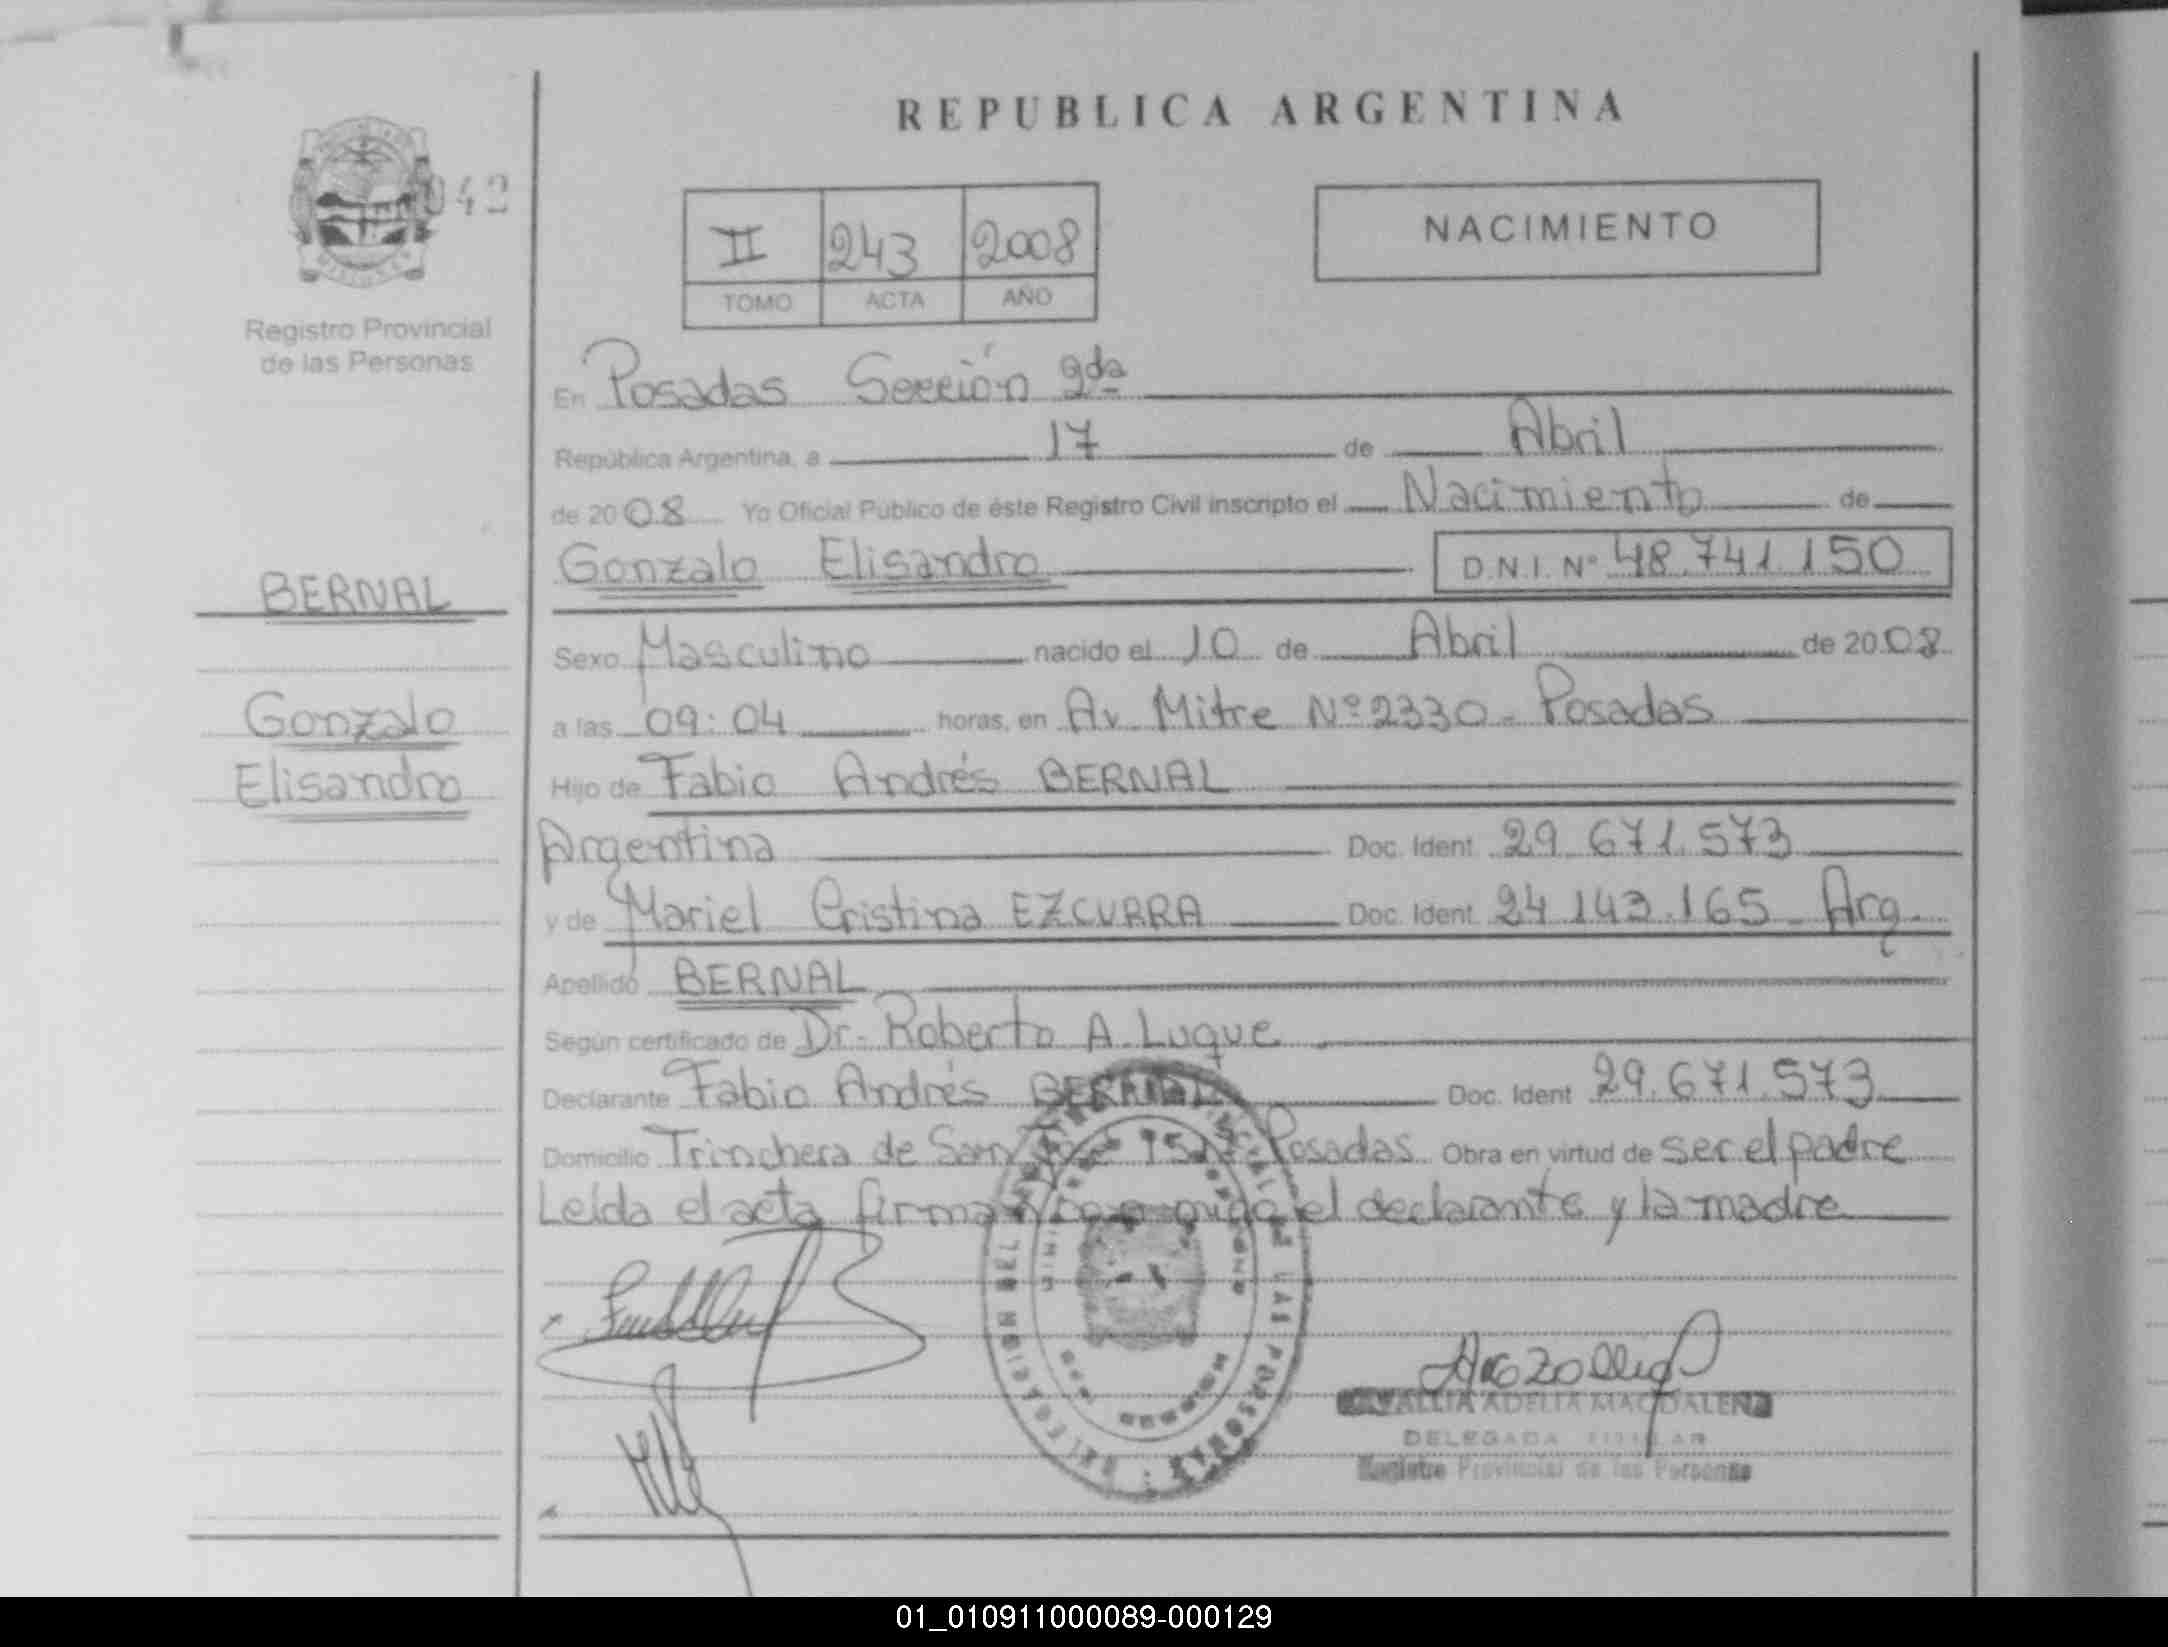 REPUBLICA ARGENTINA
042
II 243 2008
TOMO ACTA AÑO
NACIMIENTO
Registro Provincial
de las Personas
BERNAL
Gonzalo
Elisandro
En Posadas Sección 2da
República Argentina, a 17 de Abril
de 2008 Yo Oficial Público de éste Registro Civil inscripto el Nacimiento de
Gonzalo Elisandro D.N.I. Nº 48.741.150
Sexo Masculino nacido el 10 de Abril de 2008
a las 09:04 horas, en Av. Mitre Nº 2330 - Posadas
Hijo de Fabio Andrés BERNAL
Argentina Doc. Ident. 29.671.573
y de Mariel Cristina EZCURRA Doc. Ident. 24.143.165 - Arg.
Apellido BERNAL
Según certificado de Dr. Roberto A. Luque
Declarante Fabio Andrés BERNAL Doc. Ident. 29.671.573
Domicilio Trinchera de San José Posadas Obra en virtud de ser el padre
Leída el acta firman conmigo el declarante y la madre
ADELIA MAGDALENA
DELEGADA TITULAR
Registro Provincial de las Personas
01_010911000089-000129